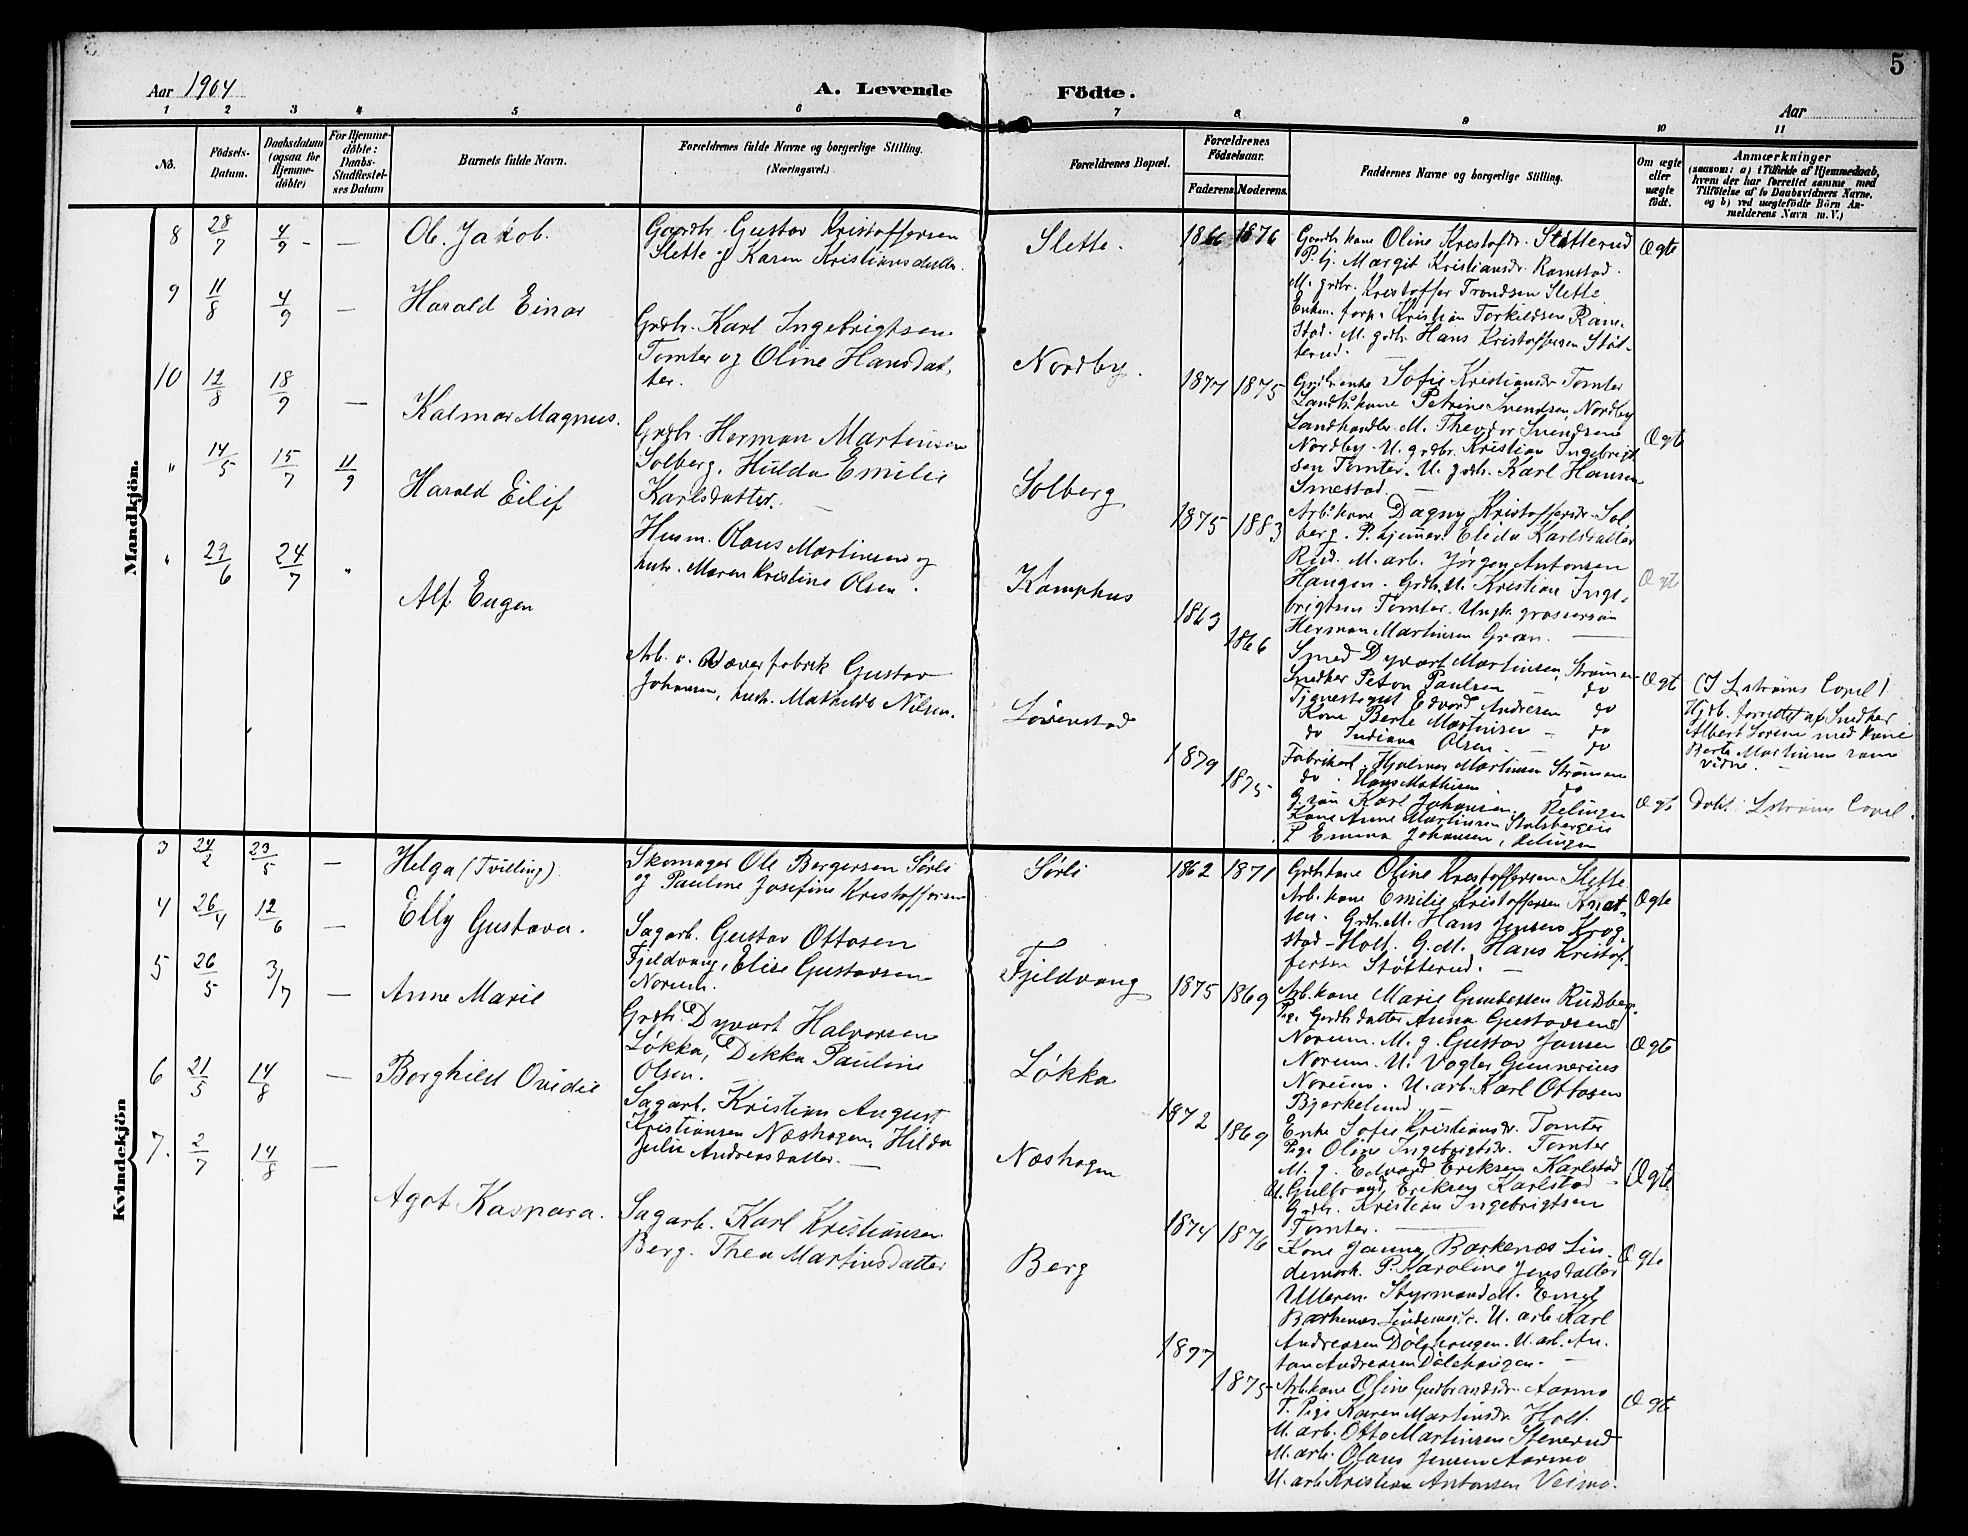 5
Aar 1904
A. Levende
Födte.
Aar
1 2 3 4 5 6 7 8 9 10 11
No.
Födsels-Datum.
Daabsdatum (ogsaa for Hjemme-döbte)
For Hjemme-döbte: Daabs-Stadfæstel-ses Datum
Barnets fulde Navn.
Forældrenes fulde Navne og borgerlige Stilling.
(Næringsvei.)
Forældrenes Bopæl.
Forældrenes Födselsaar.
Faderens. Moderens.
Faddernes Navne og borgerlig Stilling.
Om ægte eller uægte födt.
Anmærkninger
(saasom: a) i Tilfælde af Hjemmedaab,
hvem der har forrettet samme med
Tilföielse af to Daabsvidners Navne.
og b) ved uægtefödte Börn An-
melderens Navn m.V.)
Mandkjön.
8 28/7 4/9 - —
Ole Jakob.
Gaardbr. Gustav Kristoffersen
Slette og Karen Kristiansdatter.
Slette.
1866 1876
Gaardbr kone Oline Kristofdr. Støtterud
P. Hj. Margit Kristiansdr. Ramstad.
M. grdbr. Kristoffer Trondsen Slette
Enkem. forp. Kristian Torkildsen Ram-
stad. M. grdbr. Hans Kristoffersen Støt-
terud. —
Øgte
9 11/8 4/9 —
Harald Einar
Grdbr. Karl Ingebrigtsen
Tomter og Oline Hansdat-
ter.
Nordby.
1877 1875
Grdbr enke Sofie Kristiansdr Tomter
Landh. kone Petrine Svendsen Nordby
Landhandler M. Theodor Svendsen
Nordby. U. grdbr. Kristian Ingebrigt
sen Tomter. U. grdb. Karl Hansen
Smestad. —
Ægte
10 12/8 18/9 —
Kalmar Magnus.
Grdbr. Herman Martinsen
Solberg, Hulda Emilie
Karlsdatter. —
Solberg
1875 1883
Arb. kone Dagny Kristoffersdr. Sol
berg. P. hjemmev. Elida Karlsdatter
Rud. M. arb. Jørgen Antonsen
Haugen. Grdb. U. Kristian Inge-
brigtsen Tomter. Ungk. grossersøn
Herman Martinsen Gran. —
Ægte
" 14/5 15/7 11/9
Harald Eilif
Husm. Olaus Martinsen og
hustr. Maren Kristine Olsen.
Kamphus
1863 1866
Smed Dyvart Martinsen, Strømmen
Snedker Peton Paulsen do
Tjenestegut Edvard Andresen do
Kone Berte Martinsen - do
do Indiana Olsen - do
Ægte
(I Lstrøms Capel)
Hjdb. forrettet af Snedker
Albert Sorens med kone
Berte Martinsen som
vidne. —
" 29/6 24/7 "
Alf Eugen
Arb. v. Væverfabrik Gustav
Johansen, hustr. Mathilde Nilsen.
Løvenstad
1879 1875
Fabrikarb. Hjalmar Martinsen Strømmen
do. Hans Mathisen do
G. søn Karl Johansen, Relingen
Kone Anne Martinsen Stalsbergeie
P Emma Johansen, Relingen
Ægte
Døbt i Lstrøms Capel.
Kvindekjön
3 24/2 23/5 —
Helga (Tvilling).
Skomager Ole Bergersen Sørli
og Pauline Josefine Kristoffersen
Sørli
1862 1871
Grdb. kone Oline Kristoffersen Slette
Arb. kone Emilie Kristoffersen Knat-
ten. Grdb. M. Hans Jensen Krog
stad - Holt. G. M. Hans Kristof-
fersen Støtterud. —
Øgte
4 26/4 12/6 —
Elly Gustava.
Sagarb. Gustav Ottosen
Fjeldvang, Elise Gustavsen
Norum.
Fjeldvang
1875 1869
Arb. kone Marie Gundersen Rudsberg.
Pige Grdb datter Anna Gustavsend
Norum. M. g. Gustav Jansen
Norum. U. Vogter Gunnerius
Norum. U. arb. Karl Ottosen
Bjerkelund. —
Øgte
5 26/5 3/7 —
Anne Marie
Grdbr. Dyvart Halvorsen
Løkka, Dikka Pauline
Olsen. —
Løkka
1872 1869
Enke Sofie Kristiansdr. Tomter
Pige Oline Ingebrigtsdr. Tomter
M. g. Edvard Eriksen Karlstad
U. Gulbrand Eriksen Karlstad -
Grdb. Kristian Ingebrigtsen
Tomter. —
Øgte
6 21/5 14/8 —
Borghild Ovidie
Sagarb. Kristian August
Kristiansen Næshagen, Hilda
Julie Andreasdatter. —
Næshagen
1874 1876
Kone Janna Barkenæs Lin-
demark. P. Karoline Jensdatter
Ulleren. Styrmand M. Emil
Barkenæs Lindemark. U. arb Karl
Andreasen Dølehaugen. U. arb. An-
ton Andreasen Dølehaugen. —
Øgte
7. 2/7 14/8 —
Agot Kaspara.
Sagarb. Karl Kristiansen
Berg. Thea Martinsdatter
Berg
1877 1875
Arb. kone Oline Gudbrandsdr. Aarmo
T. Pige Karen Martinsdr. Holt.
U. arb. Otto Martinsen Stenerud
M. arb. Olaus Jensen Aarmo
U. arb Kristian Antonsen Veimo.
Øgte